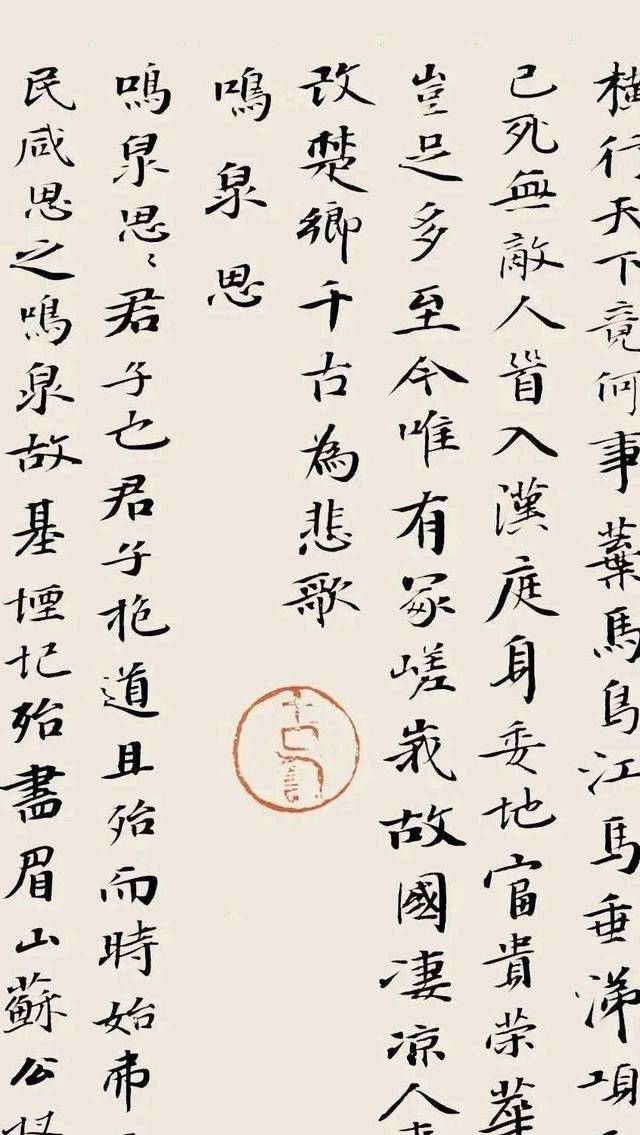 橫行天下竟何事棄馬烏江馬垂涕項
已死無敵人首入漢庭身委地富貴榮華
豈足多至今唯有冢嵯峩故國淒涼人事
改楚鄉千古為悲歌
鳴泉思
鳴泉思思君子也君子抱道且殆而時始弗
民咸思之鳴泉故基堙圮殆盡眉山蘇公